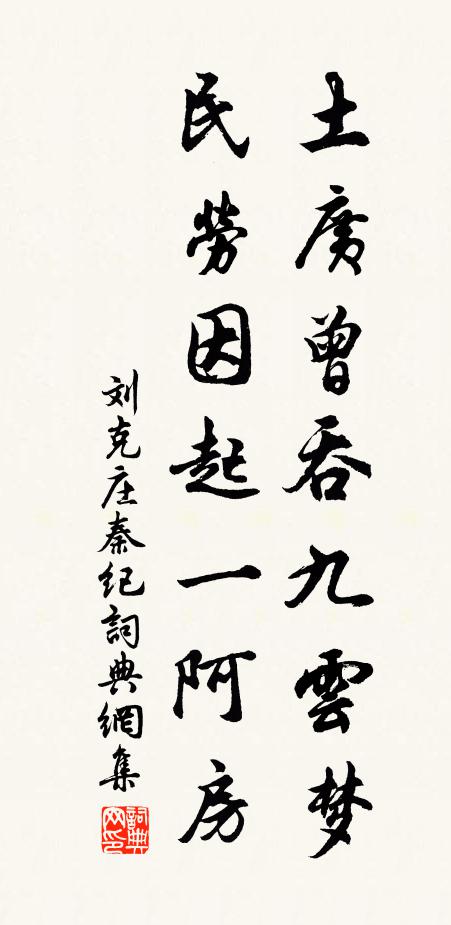 土廣曾吞九雲梦
民勞因起一阿房
刘克庄秦纪詞典網集
詞典网印